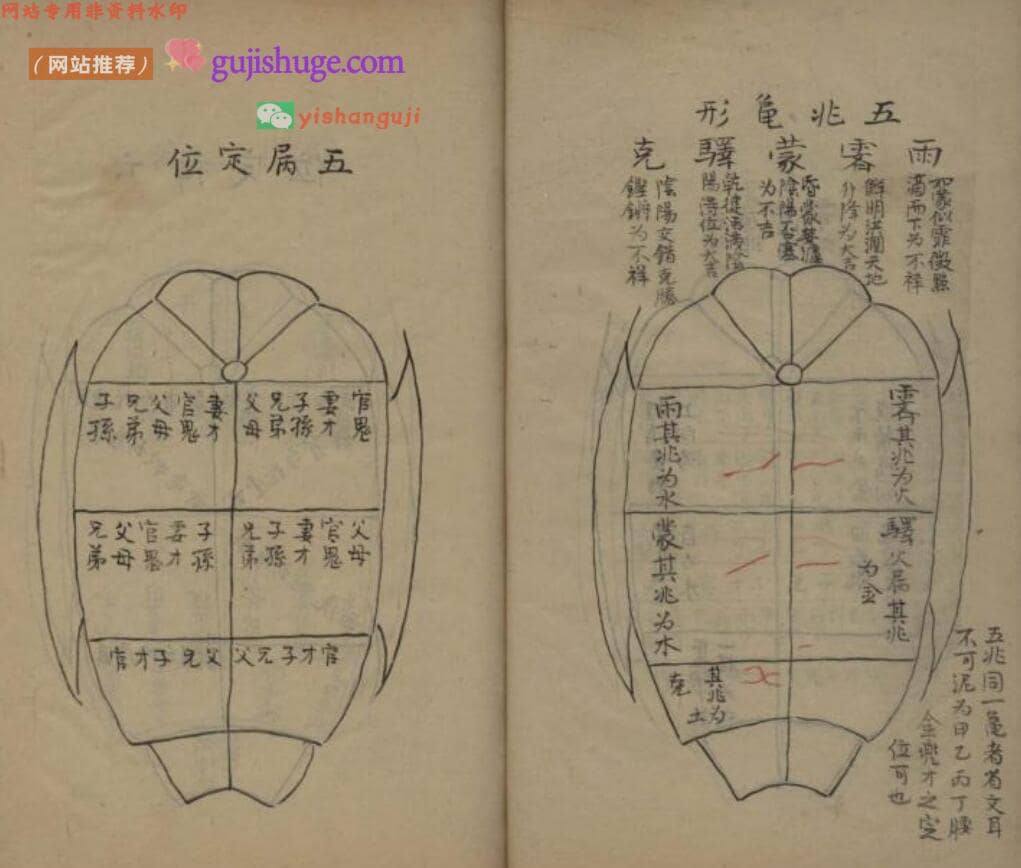 网站专用非资料水印
（网站推荐）
gujishuge.com
yishanguji
五兆亀形
雨
如蒙似霏微點
滴而下为不祥
霽
鮮明洪潤天地
升降为大吉
蒙
陰陽否塞
为不吉
驛
陽得位为大吉
克
陰陽交錯克勝
鏗鏘为不祥
霽其兆为火
雨其兆为水
驛火属其兆
为金
蒙其兆为木
克其兆为土
五兆同一亀者省文耳
不可泥为甲乙丙丁腰
金兜才之定
位可也
五属定位
官鬼
妻才
子孫
兄弟
父母
妻才
官鬼
父母
兄弟
子孫
父母
官鬼
妻才
子孫
兄弟
子孫
妻才
官鬼
父母
兄弟
官才子兄父
父兄子才官